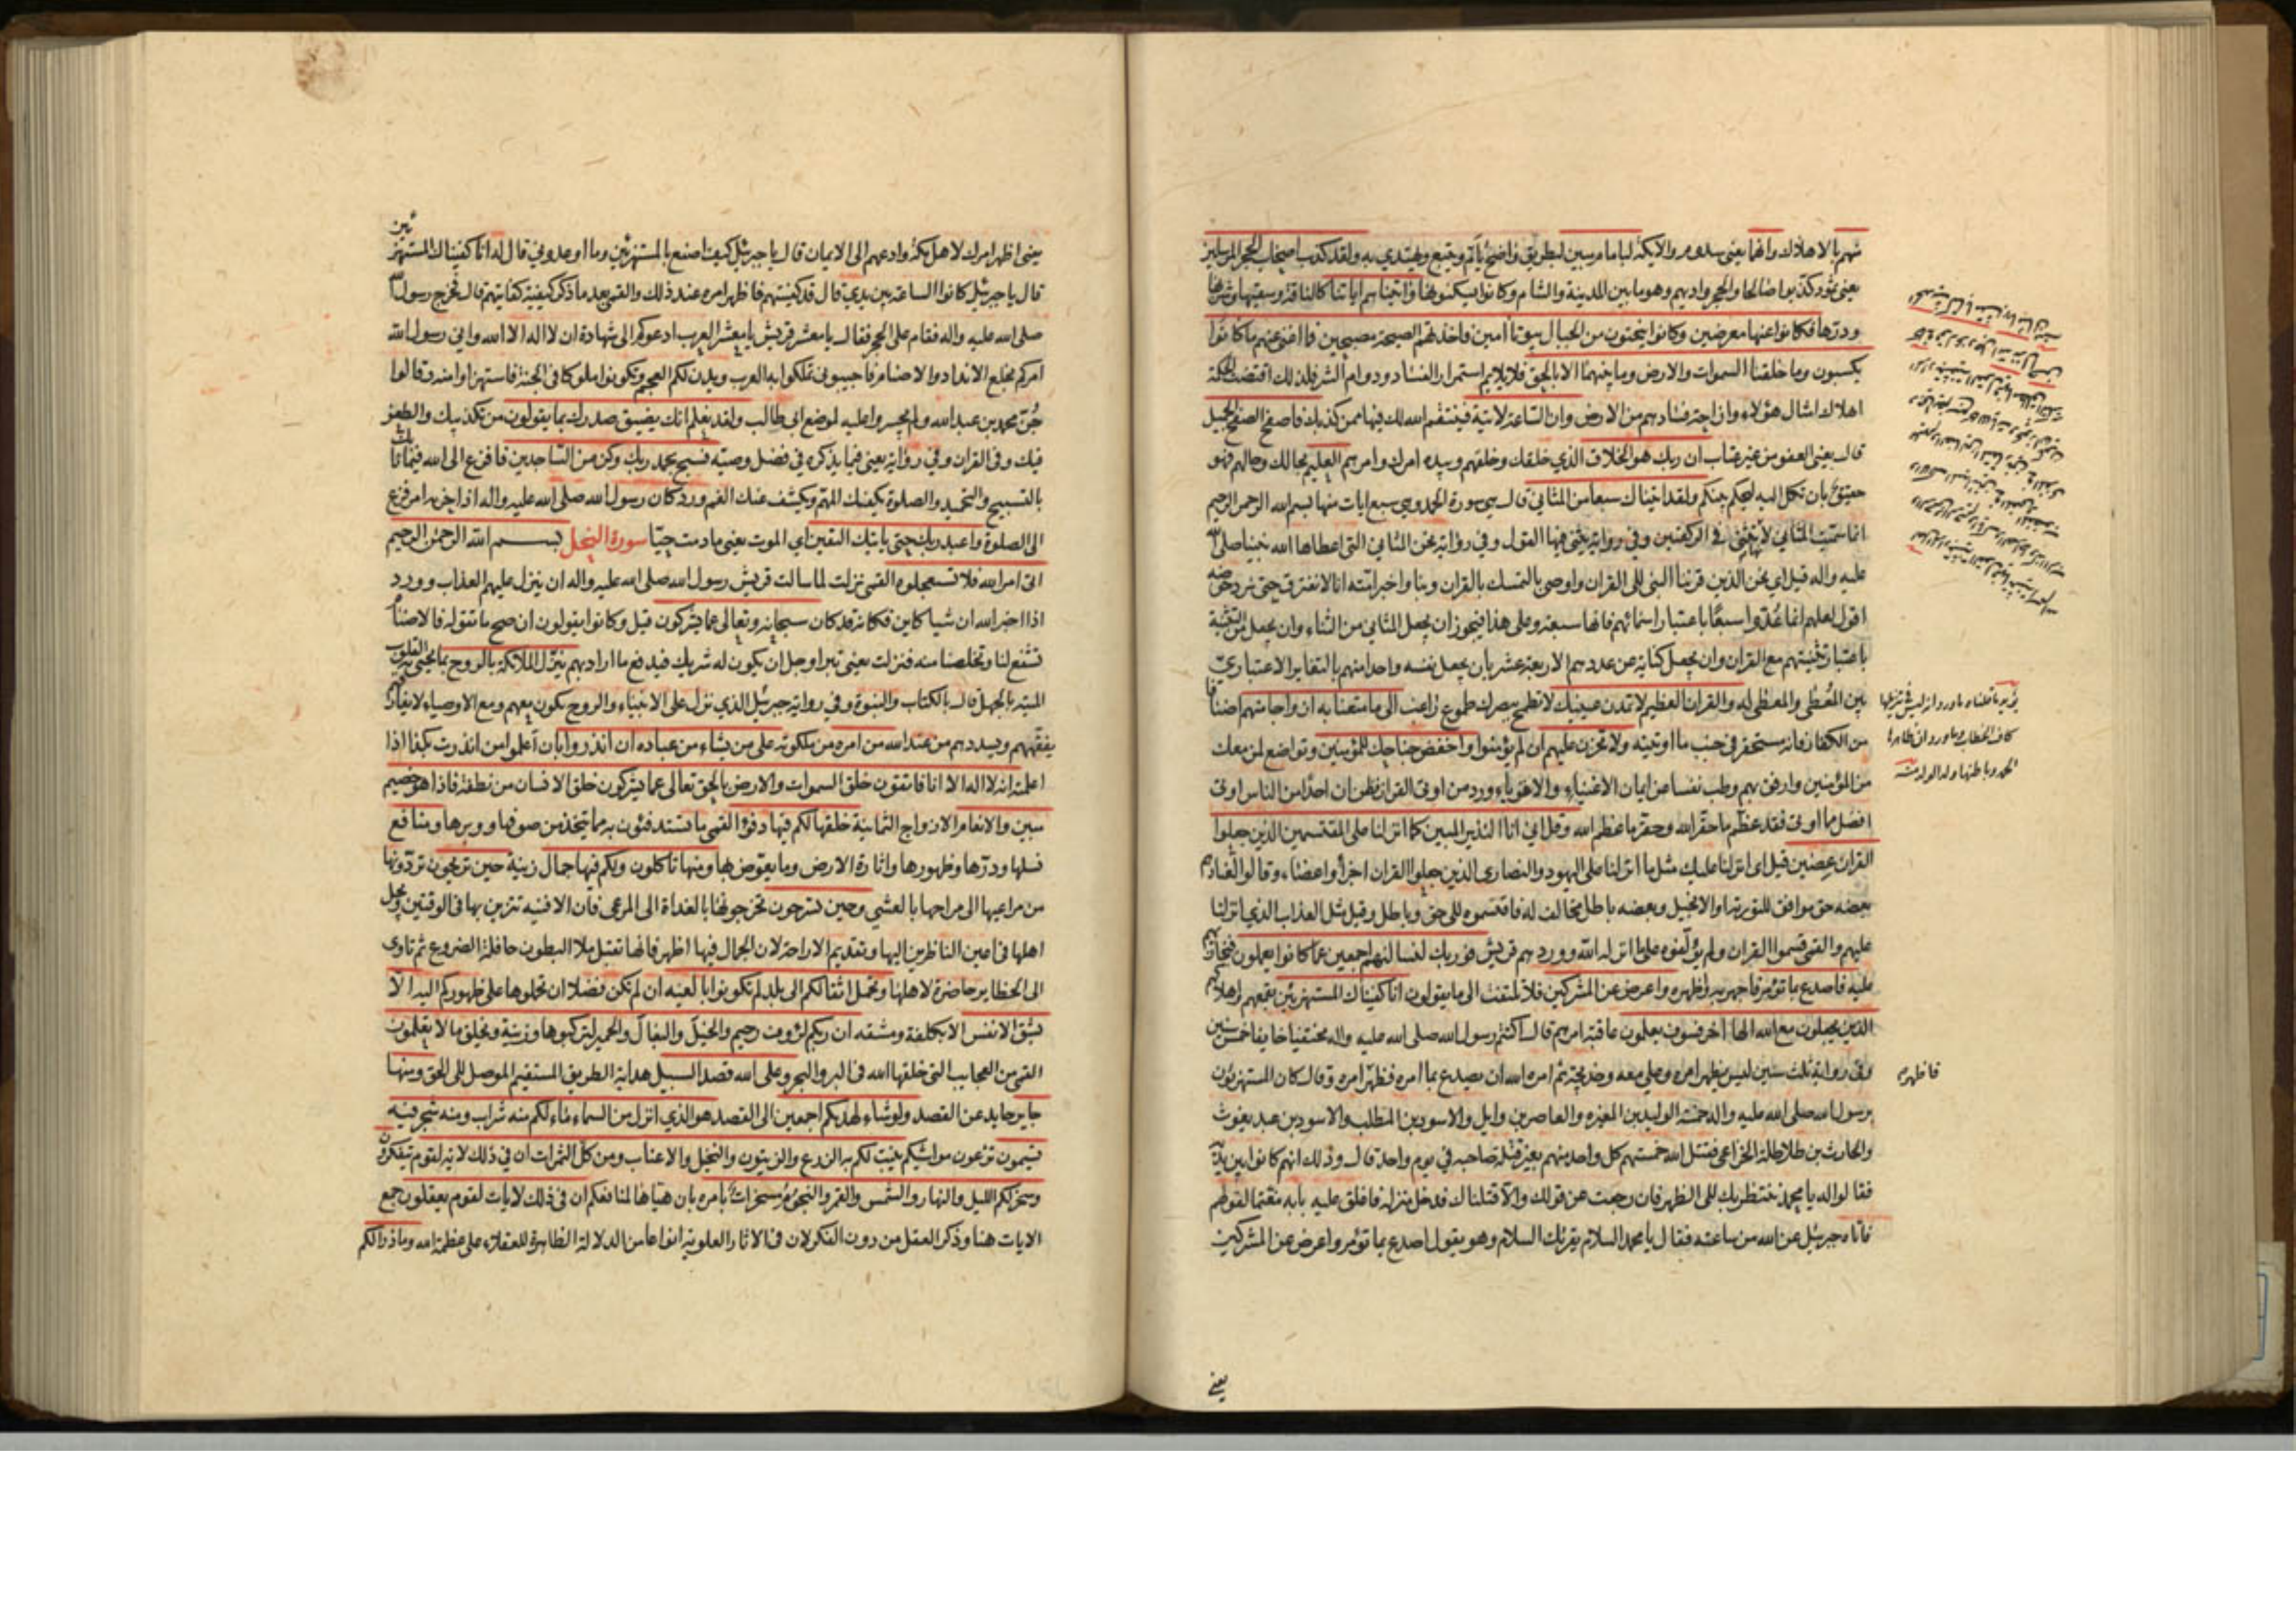 منهم بالاهلاك وانهما يعني سدوم والايكة لبامام مبين لبطريق واضح يأتم ويتبع ويهتدي به ولقد كذب اصحاب الحجر المرسلين
يعني ثمود كذبوا صالحا والحجر واديهم وهو ما بين المدينة والشام وكانوا يسكنونها واتيناهم اياتنا كالناقة وسقيها وشربها
ودرّها فكانوا عنها معرضين وكانوا ينحتون من الجبال بيوتا امنين فاخذتهم الصيحة مصبحين فما اغنى عنهم ما كانوا
يكسبون وما خلقنا السموات والارض وما بينهما الا بالحق فلا يلايم استمرار الفساد ودوام الشر فلذلك اقتضت الحكمة
اهلاك امثال هؤلاء وازاحة فسادهم من الارض وان الساعة لاتية فينتقم الله لك فيها ممن كذبك فاصفح الصفح الجميل
قال يعني العفو من غير عتاب ان ربك هو الخلاق الذي خلقك وخلقهم وبيده امرك وامرهم العليم بحالك وحالهم فهو
حقيق بان تكل اليه ليحكم بينكم ولقد اتيناك سبعا من المثاني قال هي سورة الحمد وهي سبع ايات منها بسم الله الرحمن الرحيم
انما سميت المثاني لانها تثنى في الركعتين وفي رواية يثنى فيها القول وفي رواية نحن المثاني التي اعطاها الله نبينا صلى الله
عليه واله قيل اي نحن الذين قرننا النبي الى القران واوصى بالتمسك بالقران وبنا واخبر امته انا لا نفترق حتى نرد حوضه
اقول لعلهم انما عدّوا سبعًا باعتبار اسمائهم فانها سبعة وعلى هذا فيجوز ان يجعل المثاني من الثناء وان يجعل من التثنية
باعتبار تثنيتهم مع القران وان يجعل كناية عن عددهم الاربعة عشر بان يجعل نفسه واحدا منهم بالتغاير الاعتباري
بين المُعطِي والمعطى له والقران العظيم لا تمدن عينيك لا تطمح ببصرك طموح راغب الى ما متعنا به ازواجا منهم اصنافا
من الكفار فانه مستحقر في جنب ما اوتيته ولا تحزن عليهم ان لم يؤمنوا واخفض جناحك للمؤمنين وتواضع لمن معك
من المؤمنين وارفق بهم وطب نفسا عن ايمان الاغنياء والاقوياء وورد من اوتي القران فظن ان احدًا من الناس اوتي
افضل مما اوتي فقد عظّم ما حقّر الله وحقّر ما عظم الله وقل اني انا النذير المبين كما انزلنا على المقتسمين الذين جعلوا
القران عضين قيل اي انزلنا عليك مثل ما انزلنا على اليهود والنصارى الذين جعلوا القران اجزأ واعضاء وقالوا لعنادهم
بعضه حق موافق للتورية والانجيل وبعضه باطل مخالف له فاقتسموه الى حق وباطل وقيل مثل العذاب الذي انزلنا
عليهم والقمي قسموا القران ولم يؤلفوه على ما انزله الله وورد هم قريش فوربك لنسألنهم اجمعين عما كانوا يعملون فنجازيهم
عليه فاصدع بما تؤمر فاجهر به واظهره واعرض عن المشركين فلا تلتفت الى ما يقولون انا كفيناك المستهزئين بقمعهم واهلاكهم
الذين يجعلون مع الله الها اخر فسوف يعلمون عاقبة امرهم قال اكتتم رسول الله صلى الله عليه واله مختفيا خايفا خمس سنين
وفي رواية ثلث سنين ليس يظهر امره وعلي معه وخديجة ثم امره الله ان يصدع بما امره فظهّر امره وقال كان المستهزؤن
برسول الله صلى الله عليه واله خمسة الوليد بن المغيرة والعاص بن وايل والاسود بن المطلب والاسود بن عبد يغوث
والحارث بن طلاطلة الخزاعي فقتل الله خمستهم كل واحد منهم بغير قتلة صاحبه في يوم واحد قال وذلك انهم كانوا بين يديه
فقالوا له يا محمد ننتظر بك الى الظهر فان رجعت عن قولك والا قتلناك فدخل منزله فاغلق عليه بابه مغتما لقولهم
فاتاه جبرئيل عن الله من ساعته فقال يا محمد السلام يقرئك السلام وهو يقول اصدع بما تؤمر واعرض عن المشركين
فاظهره
يعني
يعني اظهر امرك لاهل مكة وادعهم الى الايمان قال يا جبرئيل كيف اصنع بالمستهزئين وما اوعدوني قال له انا كفيناك المستهزئين
قال يا جبرئيل كانوا الساعة بين يدي قال قد كفيتهم فاظهر امره عند ذلك والقمي بعد ما ذكر كيفية كفايتهم قال فخرج رسول الله
صلى الله عليه واله فقام على الحجر فقال يا معشر قريش يا معشر العرب ادعوكم الى شهادة ان لا اله الا الله واني رسول الله
امركم بخلع الانداد والاصنام فاجيبوني تملكوا بها العرب ويدن لكم العجم وتكونوا ملوكا في الجنة فاستهزاوا منه وقالوا
جُنّ محمد بن عبد الله ولم يجسروا عليه لموضع ابي طالب ولقد نعلم انك يضيق صدرك بما يقولون من تكذيبك والطعن
فيك وفي القران وفي رواية يعني فيما يذكره في فضل وصيه فسبح بحمد ربك وكن من الساجدين فافزع الى الله فيما نابك
بالتسبيح والتحميد والصلوة يكفيك المهم ويكشف عنك الغم وورد كان رسول الله صلى الله عليه واله اذا حزنه امر فزع
الى الصلوة واعبد ربك حتى ياتيك اليقين اي الموت يعني ما دمت حيّا سورة النحل بسم الله الرحمن الرحيم
اتى امر الله فلا تستعجلوه القمي نزلت لما سالت قريش رسول الله صلى الله عليه واله ان ينزل عليهم العذاب وورد
اذا اخبر الله ان شيا كاين فكانه قد كان سبحانه وتعالى عما يشركون قيل وكانوا يقولون ان صح ما تقوله فالاصنام
تشفع لنا وتخلصنا منه فنزلت يعني تبرا وجل ان يكون له شريك فيدفع ما ارادبهم ينزّل الملائكة بالروح بما يحيى به القلوب
الميتة بالجهل قال بالكتاب والنبوة وفي رواية جبرئيل الذي نزل على الانبياء والروح يكون معهم ومع الاوصياء لا يفارقهم
يفقههم ويسددهم من عند الله من امره من ملكوته على من يشاء من عباده ان انذروا بان اعلموا من انذرت بكذا اذا
اعلمته انه لا اله الا انا فاتقون خلق السموات والارض بالحق تعالى عما يشركون خلق الانسان من نطفة فاذا هو خصيم
مبين والانعام الازواج الثمانية خلقها لكم فيها دفؤ القمي ما تستدفئون به مما يتخذ من صوفها ووبرها ومنافع
نسلها ودرّها وظهورها واثارة الارض وما يعوّض بها ومنها تاكلون ولكم فيها جمال زينة حين تريحون تردّونها
من مراعيها الى مراحها بالعشي وحين تسرحون تخرجونها بالغداة الى المرعى فان الافنية تتزين بها في الوقتين ويجل
اهلها في اعين الناظرين اليها وتقديم الاراحة لان الجمال فيها اظهر فانها تقبل ملا البطون حافلة الضروع ثم تاوى
الى الحظاير حاضرة لاهلها وتحمل اثقالكم الى بلد لم تكونوا بالغيه ان لم تكن فضلا ان تحملوها على ظهوركم اليه الا
بشق الانفس الا بكلفة ومشقه ان ربكم لرؤف رحيم والخيل والبغال والحمير لتركبوها وزينة ويخلق ما لا يعلمون
القمي من العجايب التي خلقها الله في البر والبحر وعلى الله قصد السبيل هداية الطريق المستقيم الموصل الى الحق ومنها
جاير حايد عن القصد ولو شاء لهديكم اجمعين الى القصد هو الذي انزل من السماء ماء لكم منه شراب ومنه شجر فيه
تسيمون ترعون مواشيكم ينبت لكم به الزرع والزيتون والنخيل والاعناب ومن كل الثمرات ان في ذلك لاية لقوم يتفكرون
وسخر لكم الليل والنهار والشمس والقمر والنجوم مسخرات بامره بان هيأها لمنافعكم ان في ذلك لايات لقوم يعقلون جمع
الايات هنا وذكر العقل من دون الفكر لان في الاثار العلوية انواعا من الدلالة الظاهرة للعقلاء على عظمة الله وما ذرا لكم